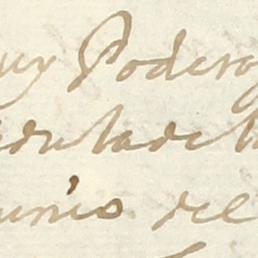 uy Podero
edula de l
unio del